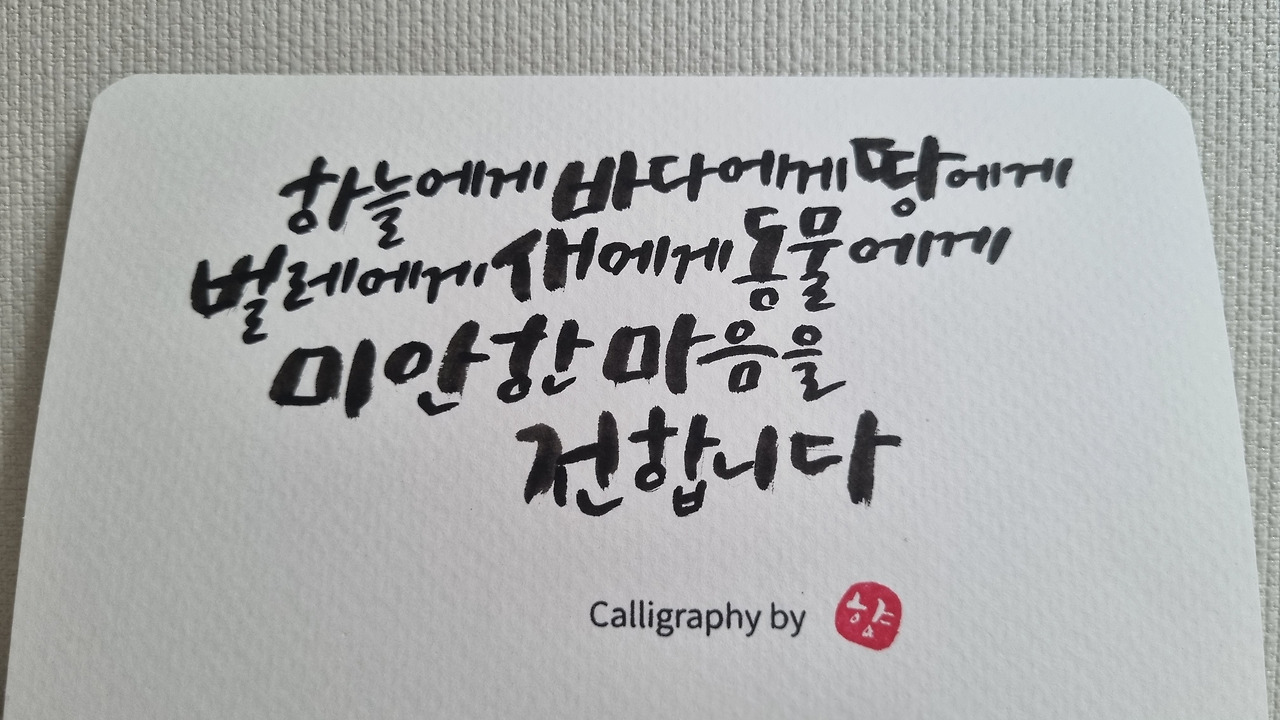 하늘에게 바다에게 땅에게
벌레에게 새에게 동물에게
미안한 마음을
전합니다
Calligraphy by